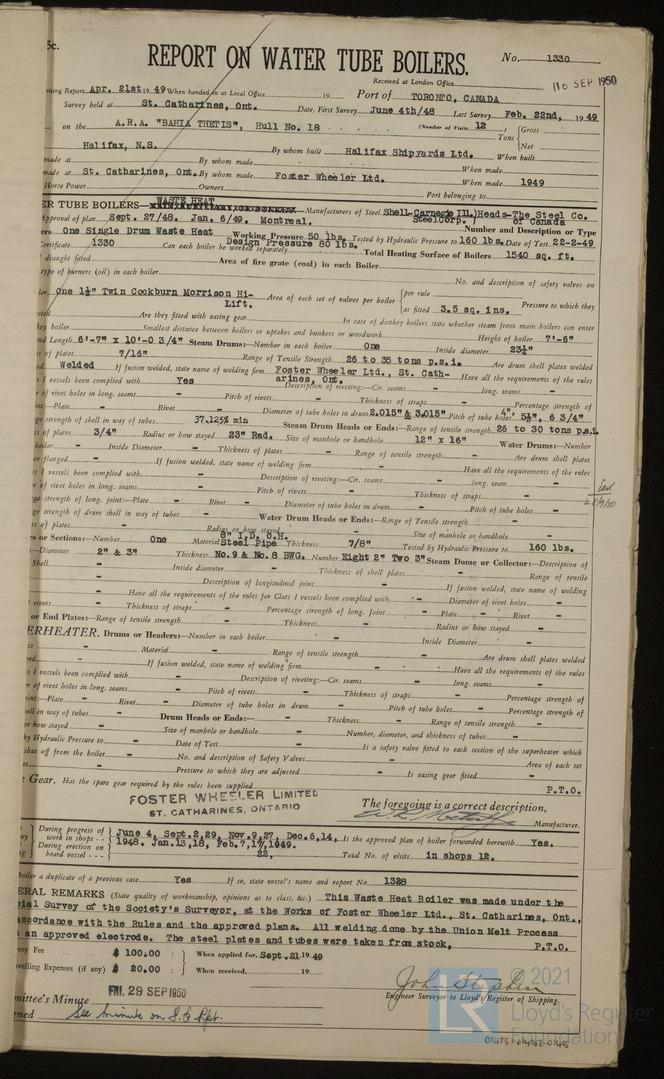 5c.
REPORT ON WATER TUBE BOILERS.
No. 1330
Received at London Office
16 SEP 1950
iting Report Apr. 21st 19 49 When handed in at Local Office 19 Port of TORONTO, CANADA
Survey held at St. Catharines, Ont. Date, First Survey June 4th/48 Last Survey Feb. 22nd, 1949
on the A.R.A. "BAHIA THETIS", Hull No. 18 (Number of Visits 12 ) Tons { Gross Net
Halifax, N.S. By whom built Halifax Shipyards Ltd. When built
made at By whom made When made
made at St. Catharines, Ont. By whom made Foster Wheeler Ltd. When made 1949
Horse Power Owners Port belonging to
ER TUBE BOILERS— WASTE HEAT —Manufacturers of Steel Shell-Carnegie Ill.) Heads-The Steel Co.
SteelCorp. ) of Canada
Approval of plan Sept. 27/48. Jan. 6/49. Montreal. Number and Description or Type
ers One Single Drum Waste Heat Working Pressure 50 lbs. Tested by Hydraulic Pressure to 160 lbs. Date of Test 22-2-49
Design Pressure 80 lbs.
Certificate 1330 Can each boiler be worked separately Total Heating Surface of Boilers 1540 sq. ft.
draught fitted Area of fire grate (coal) in each Boiler
type of burners (oil) in each boiler No. and description of safety valves on
ler One 1½" Twin Cockburn Morrison Hi-Lift. Area of each set of valves per boiler { per rule as fitted 3.5 sq. ins. Pressure to which they
sted Are they fitted with easing gear In case of donkey boilers state whether steam from main boilers can enter
key boiler Smallest distance between boilers or uptakes and bunkers or woodwork Height of boiler 7'-6"
nd Length 6'-7" x 10'-0 3/4" Steam Drums:—Number in each boiler One Inside diameter 23½"
s of plates 7/16" Range of Tensile Strength 26 to 35 tons p.s.i. Are drum shell plates welded
Welded If fusion welded, state name of welding firm Foster Wheeler Ltd., St. Catharines, Ont. Have all the requirements of the rules
I vessels been complied with Yes Description of riveting:—Cir. seams long. seams
r of rivet holes in long. seams Pitch of rivets Thickness of straps Percentage strength of
int:—Plate Rivet Diameter of tube holes in drum 2.015" & 3.015" Pitch of tube holes 4" 5½", 6 3/4"
ge strength of shell in way of tubes 37.125% min Steam Drum Heads or Ends:—Range of tensile strength 26 to 30 tons p.s.i.
s of plates 3/4" Radius or how stayed 23" Rad. Size of manhole or handhole 12" x 16" Water Drums:—Number
boiler Inside Diameter Thickness of plates Range of tensile strength Are drum shell plates
or flanged If fusion welded, state name of welding firm Have all the requirements of the rules
I vessels been complied with Description of riveting:—Cir. seams long. seam
r of rivet holes in long. seams Pitch of rivets Thickness of straps
ge strength of long. joint:—Plate Rivet Diameter of tube holes in drum Pitch of tube holes
ge strength of drum shell in way of tubes Water Drum Heads or Ends:—Range of Tensile strength
s of plates Radius or how stayed Size of manhole or handhole
rs or Sections:—Number One Material 8" I.D. O.H. Steel Pipe Thickness 7/8" Tested by Hydraulic Pressure to 160 lbs.
—Diameter 2" & 3" Thickness No.9 & No.8 BWG. Number Eight 2" Two 3" Steam Dome or Collector:—Description of
Shell Inside diameter Thickness of shell plates Range of tensile
Description of longitudinal joint If fusion welded, state name of welding
Have all the requirements of the rules for Class I vessels been complied with Diameter of rivet holes
rivets Thickness of straps Percentage strength of long. Joint Plate Rivet
or End Plates:—Range of tensile strength Thickness Radius or how stayed
ERHEATER. Drums or Headers:—Number in each boiler Inside Diameter
ss Material Range of tensile strength Are drum shell plates welded
ged If fusion welded, state name of welding firm Have all the requirements of the rules
I vessels been complied with Description of riveting:—Cir. seams long. seams
r of rivet holes in long. seams Pitch of rivets Thickness of straps Percentage strength of
int:—Plate Rivet Diameter of tube holes in drum Pitch of tube holes Percentage strength of
ell in way of tubes Drum Heads or Ends:— Thickness Range of tensile strength
or how stayed Size of manhole or handhole Number, diameter, and thickness of tubes
by Hydraulic Pressure to Date of Test Is a safety valve fitted to each section of the superheater which
shut off from the boiler No. and description of Safety Valves Area of each set
s Pressure to which they are adjusted Is easing gear fitted
Gear. Has the spare gear required by the rules been supplied P.T.O.
FOSTER WHEELER LIMITED
ST. CATHARINES, ONTARIO
The foregoing is a correct description,
Manufacturer.
During progress of work in shops - - June 4, Sept.2,29, Nov.9,27, Dec.6,14, Is the approved plan of boiler forwarded herewith Yes.
During erection on board vessel - - - 1948. Jan.13,18, Feb.7,17, 1949. 22, Total No. of visits in shops 12.
boiler a duplicate of a previous case Yes If so, state vessel's name and report No. 1328
ERAL REMARKS (State quality of workmanship, opinions as to class, &c.) This Waste Heat Boiler was made under the
ial Survey of the Society's Surveyor, at the Works of Foster Wheeler Ltd., St. Catharines, Ont.,
accordance with the Rules and the approved plans. All welding done by the Union Melt Process
an approved electrode. The steel plates and tubes were taken from stock, P.T.O.
vey Fee $ 100.00 : When applied for, Sept. 21 19 49
velling Expenses (if any) $ 20.00 : When received, 19
John Stephen
Engineer Surveyor to Lloyd's Register of Shipping.
FRI. 29 SEP 1950
mittee's Minute
ned See minute on F.E. Rpt.
© 2021
Lloyd's Register
Foundation
LR